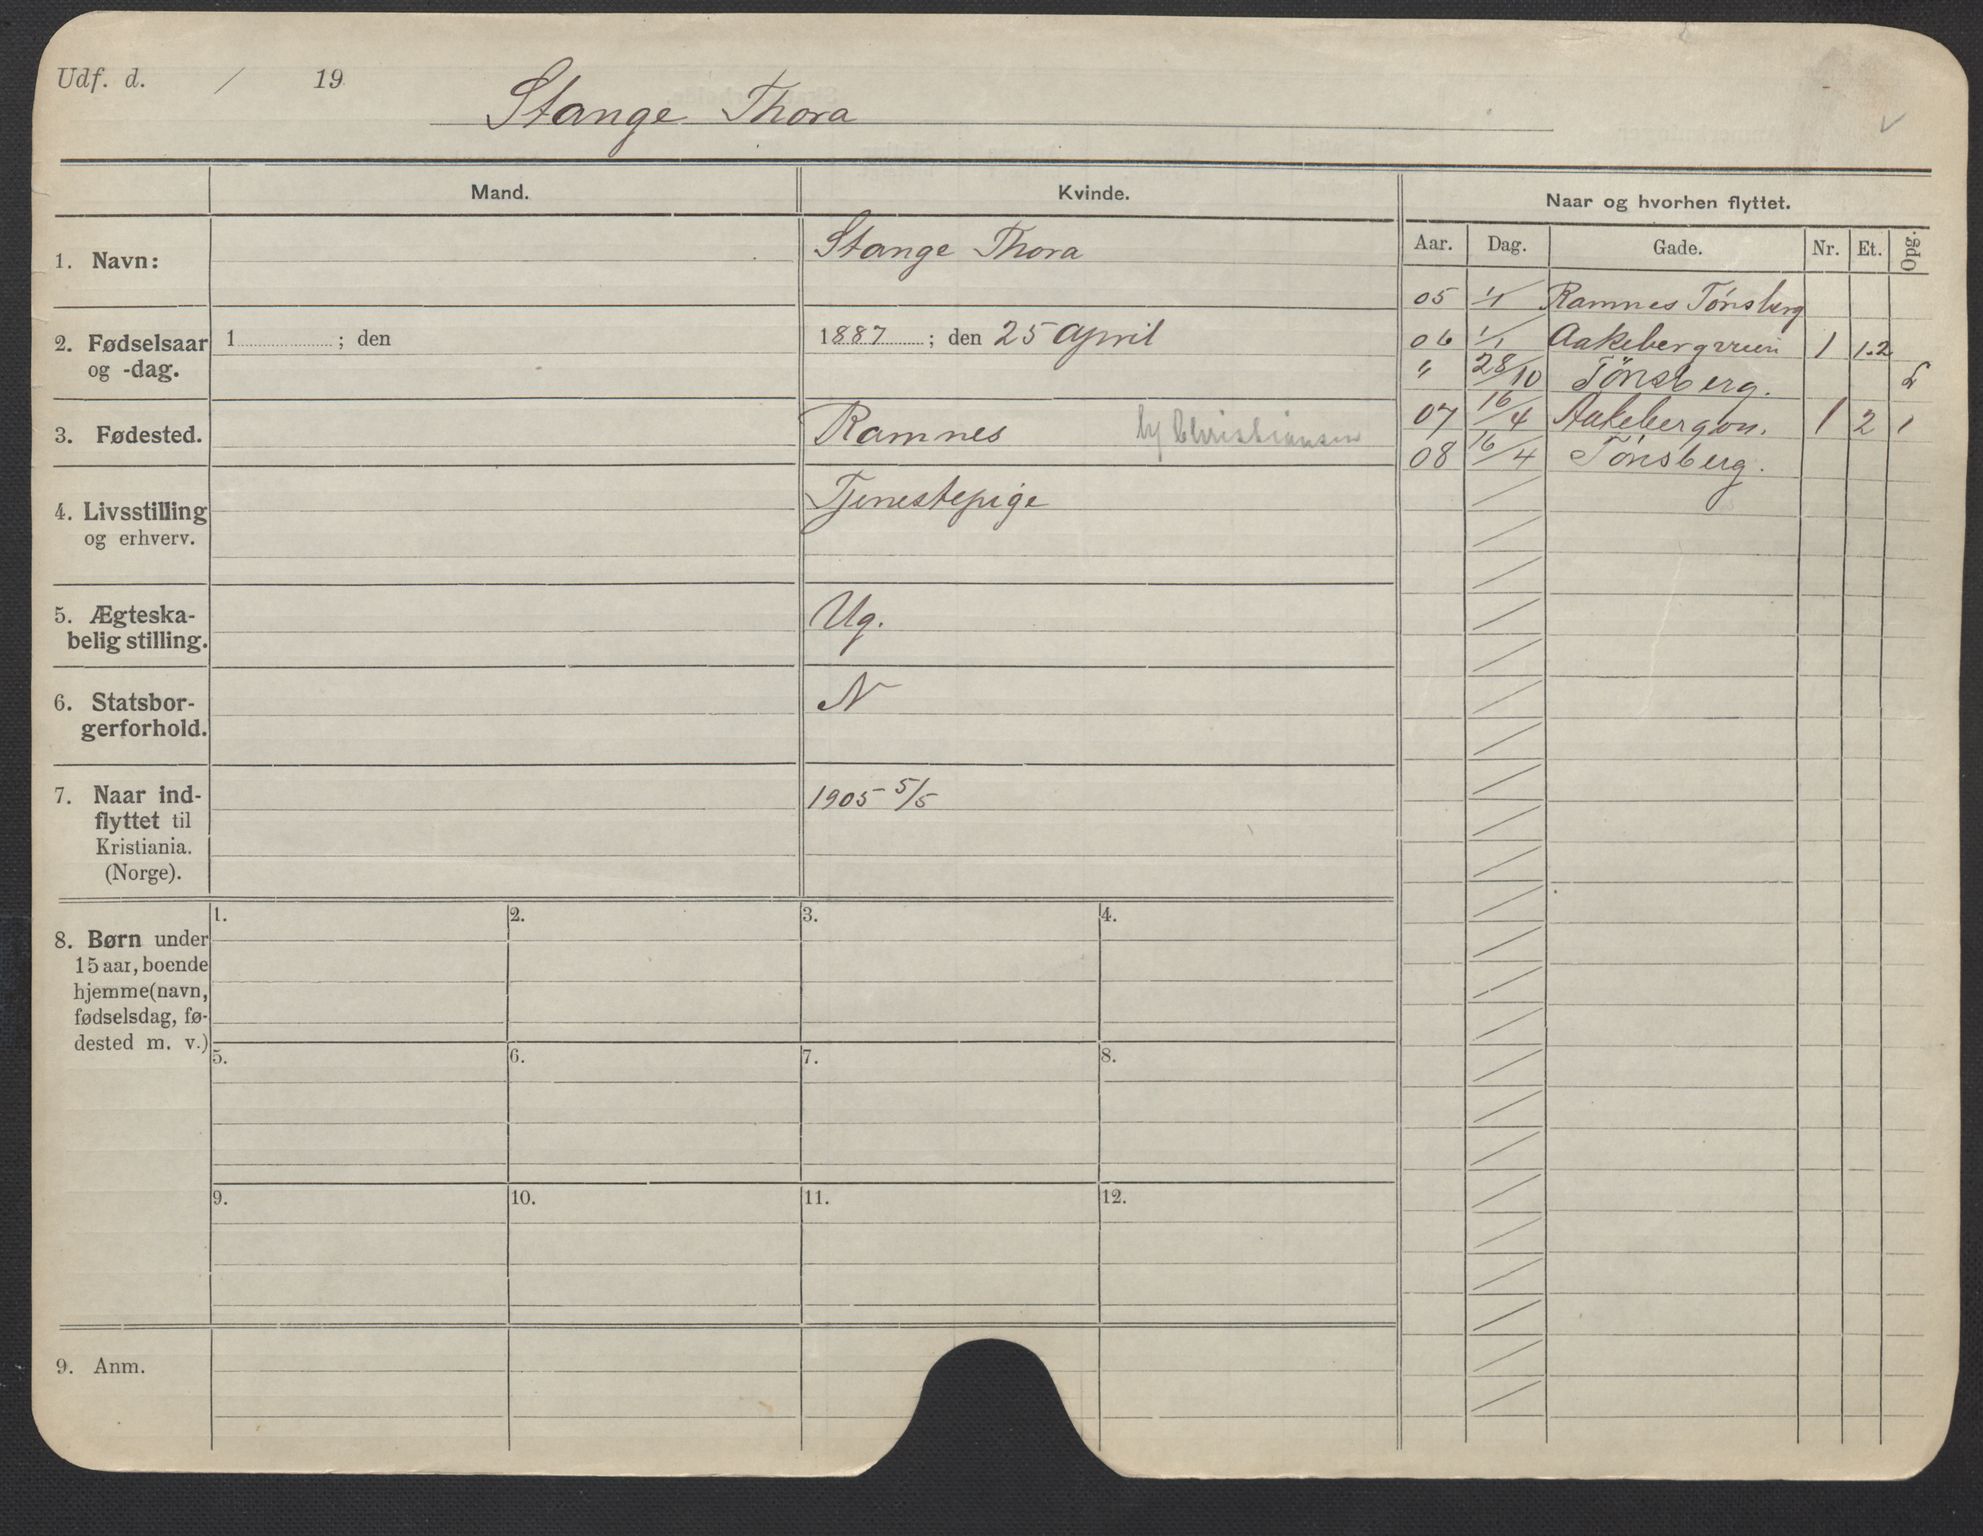 Udf. d. / 19
Stange Thora
Mand. Kvinde. Naar og hvorhen flyttet.
Aar. Dag. Gade. Nr. Et. Opg.
1. Navn: Stange Thora
2. Fødselsaar og -dag. 1 ; den 1887 ; den 25 april
3. Fødested. Ramnes h/ Christiansen
4. Livsstilling og erhverv. Tjenestepige
5. Ægteska-
belig stilling. Ug.
6. Statsbor-
gerforhold. N
7. Naar ind-
flyttet til
Kristiania.
(Norge). 1905 5/5
05 1/1 Ramnes Tønsberg
06 1/1 Aakebergveien 1 1.2
" 28/10 Tønsberg.
07 16/4 Aakebergvn. 1 2 1
08 16/4 Tønsberg.
8. Børn under
15 aar, boende
hjemme (navn,
fødselsdag, fø-
dested m. v.)
1. 2. 3. 4.
5. 6. 7. 8.
9. 10. 11. 12.
9. Anm.